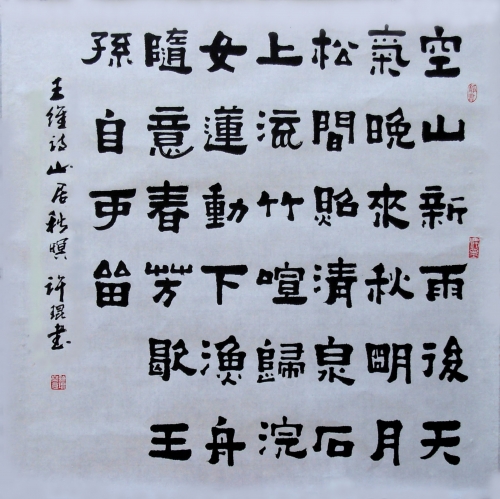 空山新雨後天
氣晚來秋明月
松間照清泉石
上流竹喧歸浣
女蓮動下漁舟
隨意春芳歇王
孫自可留
王維詩山居秋暝 許琨書